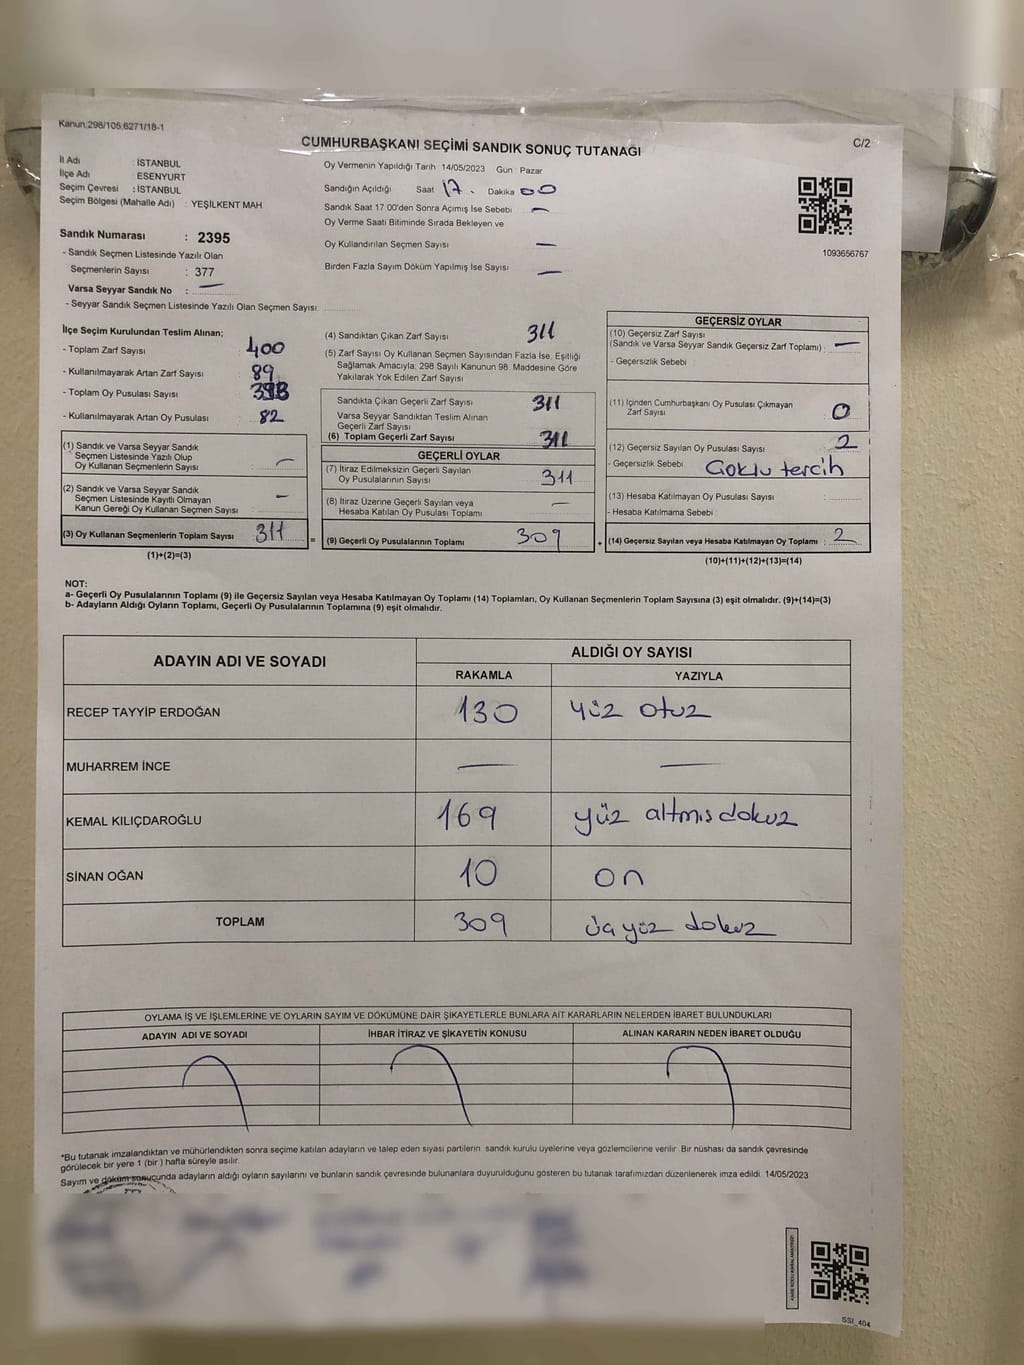 Kanun:298/105,6271/18-1
CUMHURBAŞKANI SEÇİMİ SANDIK SONUÇ TUTANAĞI
C/2
İl Adı : İSTANBUL
İlçe Adı : ESENYURT
Seçim Çevresi : İSTANBUL
Seçim Bölgesi (Mahalle Adı) : YEŞİLKENT MAH.
Sandık Numarası : 2395
- Sandık Seçmen Listesinde Yazılı Olan
Seçmenlerin Sayısı : 377
Varsa Seyyar Sandık No : —
- Seyyar Sandık Seçmen Listesinde Yazılı Olan Seçmen Sayısı:
Oy Vermenin Yapıldığı Tarih 14/05/2023 Gün : Pazar
Sandığın Açıldığı Saat 17 . Dakika 00
Sandık Saat 17:00'den Sonra Açılmış İse Sebebi —
Oy Verme Saati Bitiminde Sırada Bekleyen ve
Oy Kullandırılan Seçmen Sayısı —
Birden Fazla Sayım Döküm Yapılmış İse Sayısı —
1093656767
İlçe Seçim Kurulundan Teslim Alınan;
- Toplam Zarf Sayısı 400
- Kullanılmayarak Artan Zarf Sayısı 89
- Toplam Oy Pusulası Sayısı
- Kullanılmayarak Artan Oy Pusulası : 82
(1) Sandık ve Varsa Seyyar Sandık
Seçmen Listesinde Yazılı Olup
Oy Kullanan Seçmenlerin Sayısı : —
(2) Sandık ve Varsa Seyyar Sandık
Seçmen Listesinde Kayıtlı Olmayan
Kanun Gereği Oy Kullanan Seçmen Sayısı : —
(3) Oy Kullanan Seçmenlerin Toplam Sayısı : 311
(1)+(2)=(3)
(4) Sandıktan Çıkan Zarf Sayısı 311
(5) Zarf Sayısı Oy Kullanan Seçmen Sayısından Fazla İse, Eşitliği
Sağlamak Amacıyla; 298 Sayılı Kanunun 98. Maddesine Göre
Yakılarak Yok Edilen Zarf Sayısı
Sandıkta Çıkan Geçerli Zarf Sayısı 311
Varsa Seyyar Sandıktan Teslim Alınan
Geçerli Zarf Sayısı
(6) Toplam Geçerli Zarf Sayısı 311
GEÇERLİ OYLAR
(7) İtiraz Edilmeksizin Geçerli Sayılan
Oy Pusulalarının Sayısı 311
(8) İtiraz Üzerine Geçerli Sayılan veya
Hesaba Katılan Oy Pusulası Toplamı —
= (9) Geçerli Oy Pusulalarının Toplamı 309
GEÇERSİZ OYLAR
(10) Geçersiz Zarf Sayısı
(Sandık ve Varsa Seyyar Sandık Geçersiz Zarf Toplamı) : —
- Geçersizlik Sebebi :
(11) İçinden Cumhurbaşkanı Oy Pusulası Çıkmayan
Zarf Sayısı 0
(12) Geçersiz Sayılan Oy Pusulası Sayısı : 2
- Geçersizlik Sebebi : Çoklu tercih
(13) Hesaba Katılmayan Oy Pusulası Sayısı
- Hesaba Katılmama Sebebi :
+ (14) Geçersiz Sayılan veya Hesaba Katılmayan Oy Toplamı : 2
(10)+(11)+(12)+(13)=(14)
NOT:
a- Geçerli Oy Pusulalarının Toplamı (9) ile Geçersiz Sayılan veya Hesaba Katılmayan Oy Toplamı (14) Toplamları, Oy Kullanan Seçmenlerin Toplam Sayısına (3) eşit olmalıdır. (9)+(14)=(3)
b- Adayların Aldığı Oyların Toplamı, Geçerli Oy Pusulalarının Toplamına (9) eşit olmalıdır.
ADAYIN ADI VE SOYADI
ALDIĞI OY SAYISI
RAKAMLA YAZIYLA
RECEP TAYYİP ERDOĞAN 130 yüz otuz
MUHARREM İNCE — —
KEMAL KILIÇDAROĞLU 169 yüz altmış dokuz
SİNAN OĞAN 10 on
TOPLAM 309 üç yüz dokuz
OYLAMA İŞ VE İŞLEMLERİNE VE OYLARIN SAYIM VE DÖKÜMÜNE DAİR ŞİKAYETLERLE BUNLARA AİT KARARLARIN NELERDEN İBARET BULUNDUKLARI
ADAYIN ADI VE SOYADI İHBAR İTİRAZ VE ŞİKAYETİN KONUSU ALINAN KARARIN NEDEN İBARET OLDUĞU
*Bu tutanak imzalandıktan ve mühürlendikten sonra seçime katılan adayların ve talep eden siyasi partilerin sandık kurulu üyelerine veya gözlemcilerine verilir. Bir nüshası da sandık çevresinde
görülecek bir yere 1 (bir ) hafta süreyle asılır.
Sayım ve döküm sonucunda adayların aldığı oyların sayılarını ve bunların sandık çevresinde bulunanlara duyurulduğunu gösteren bu tutanak tarafımızdan düzenlenerek imza edildi. 14/05/2023
SSİ_404